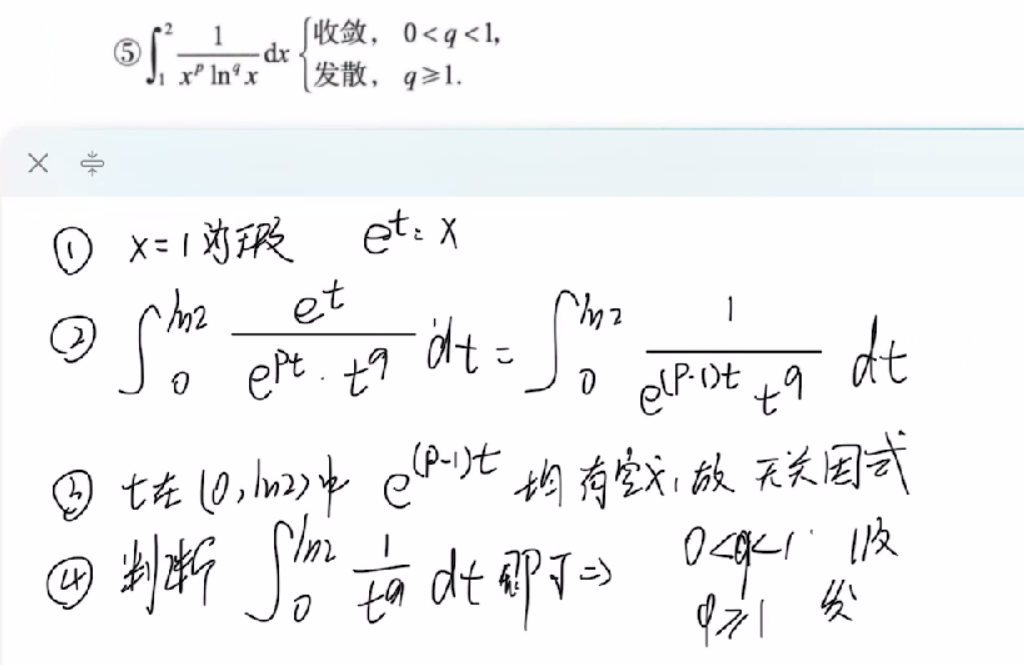 ⑤ ∫₁² 1/(x^p ln^q x) dx { 收敛, 0<q<1,
发散, q≥1.
① x=1为瑕 e^t=x
② ∫₀^{ln2} e^t/(e^{pt}·t^q) dt = ∫₀^{ln2} 1/(e^{(p-1)t} t^q) dt
③ t在(0,ln2)中 e^{(p-1)t} 均有定义,故 无关因式
④ 判断 ∫₀^{ln2} 1/t^q dt 即可 ⇒ 0<q<1 收
q≥1 发